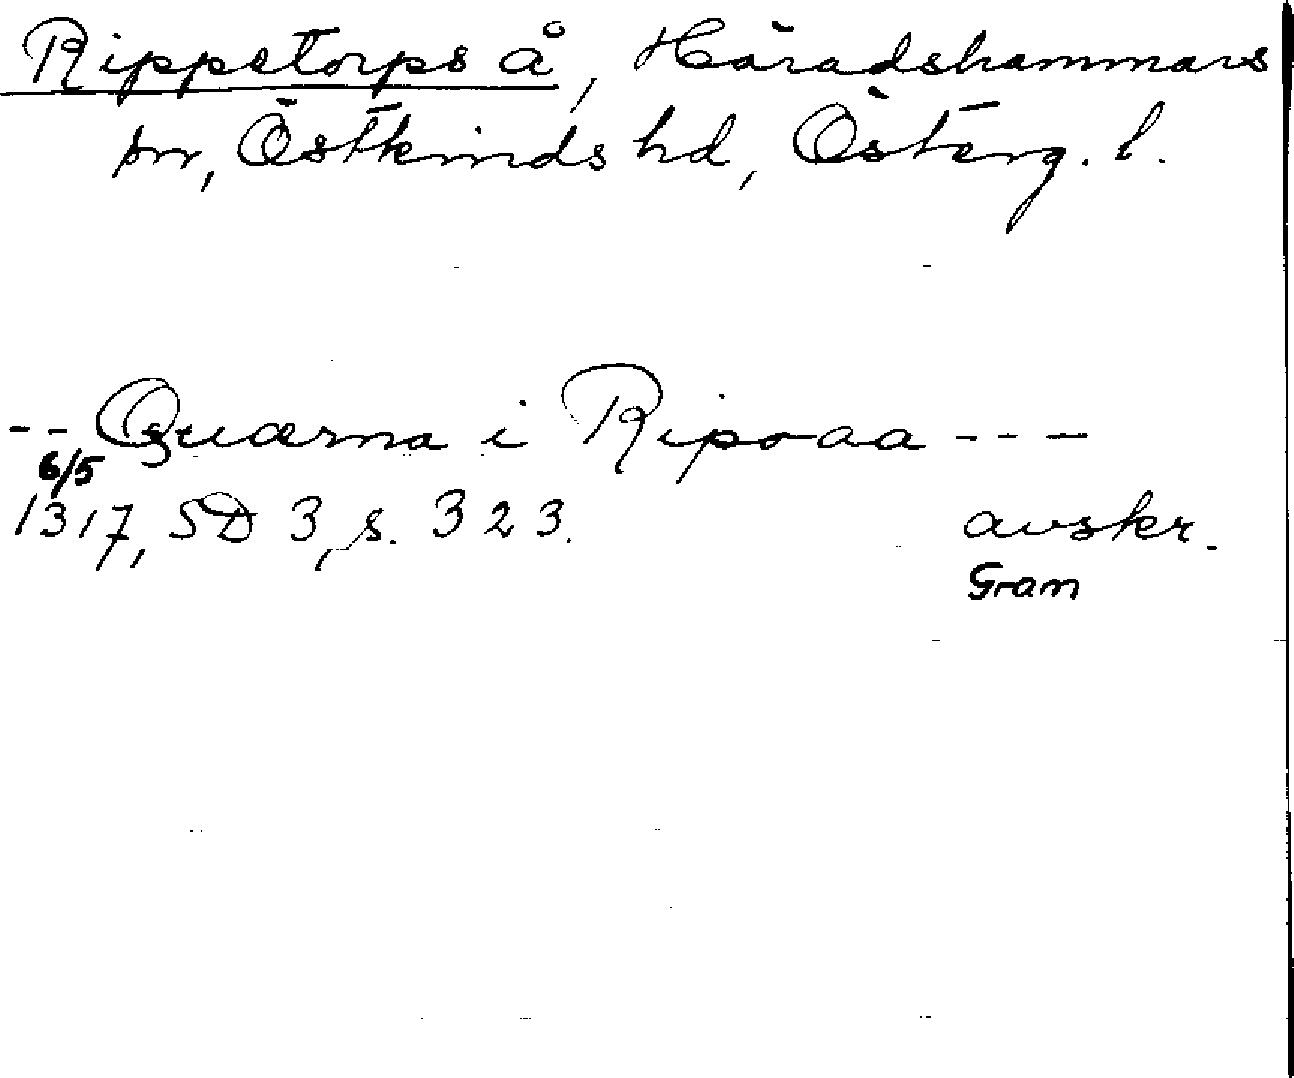 Rippetorps å, Häradshammars
sn, Östkinds hd, Österg. l.
-- Quærna i Ripoaa ---
6/5
1317, SD 3, s. 323. avskr.
Gram